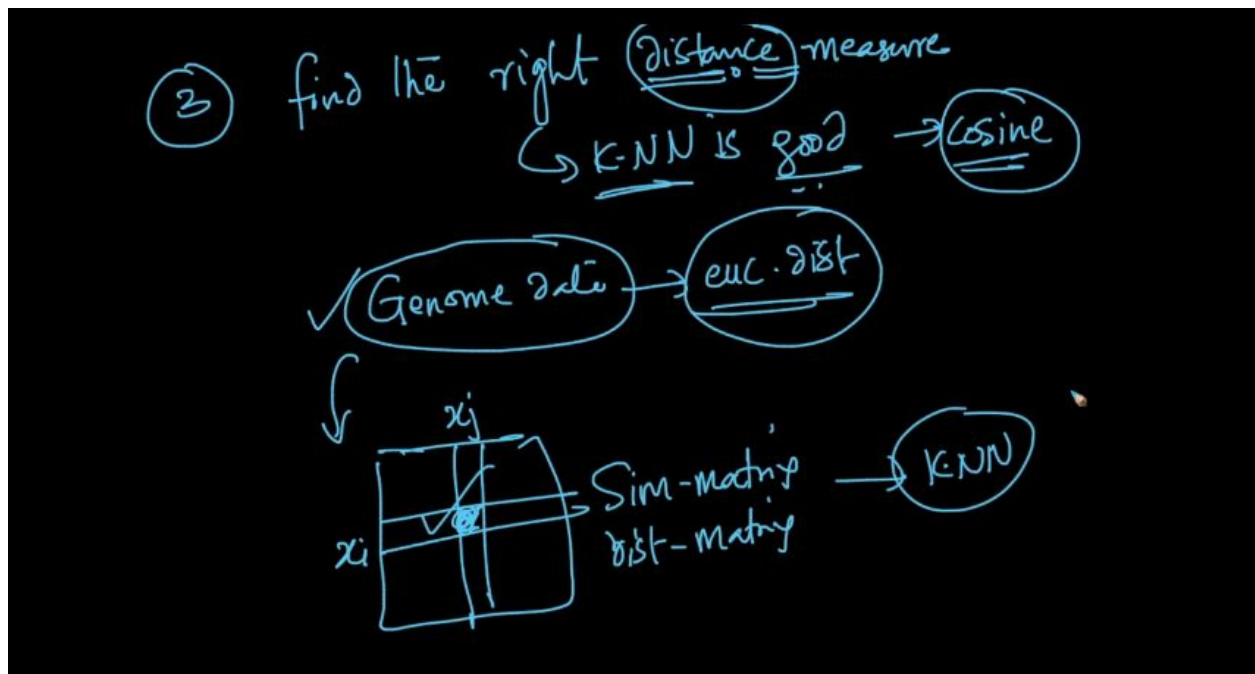 3 find the right distance measure
K-NN is good → cosine
Genome data → euc. dist
xj
Sim-matrix → K-NN
xi dist-matrix